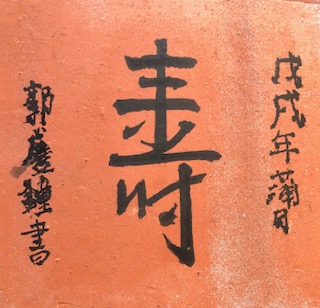 戊戌年蒲月
壽
郭慶鐘書